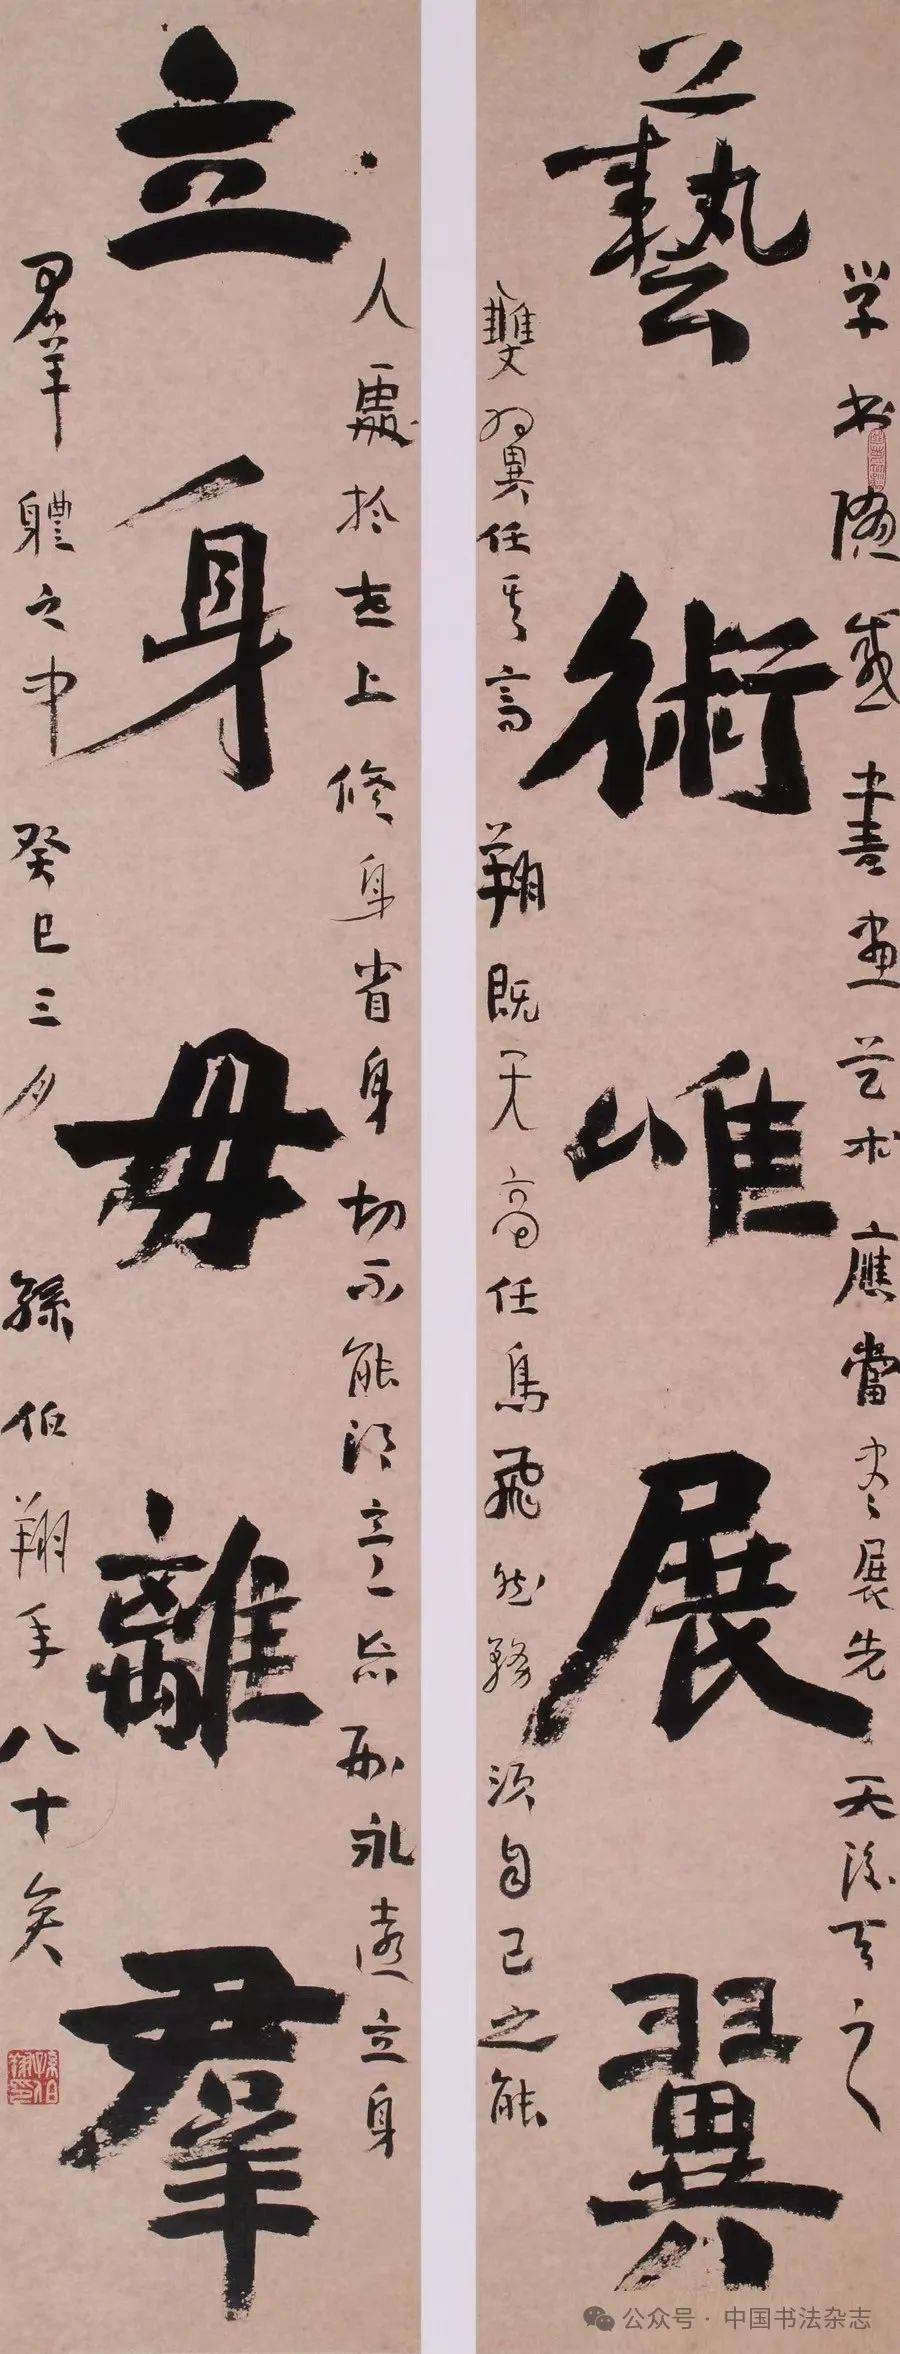 学书随感 書画艺术應當尽展先天後天之
藝術唯展翼
雙翼任其高翔既天高任鳥飛然務须自己之能
人處於世上修身省身切不能得意忘形永遠立身
立身毋離羣
羣體之中 癸巳三月 孫伯翔年八十矣
孫伯翔印
公众号 · 中国书法杂志